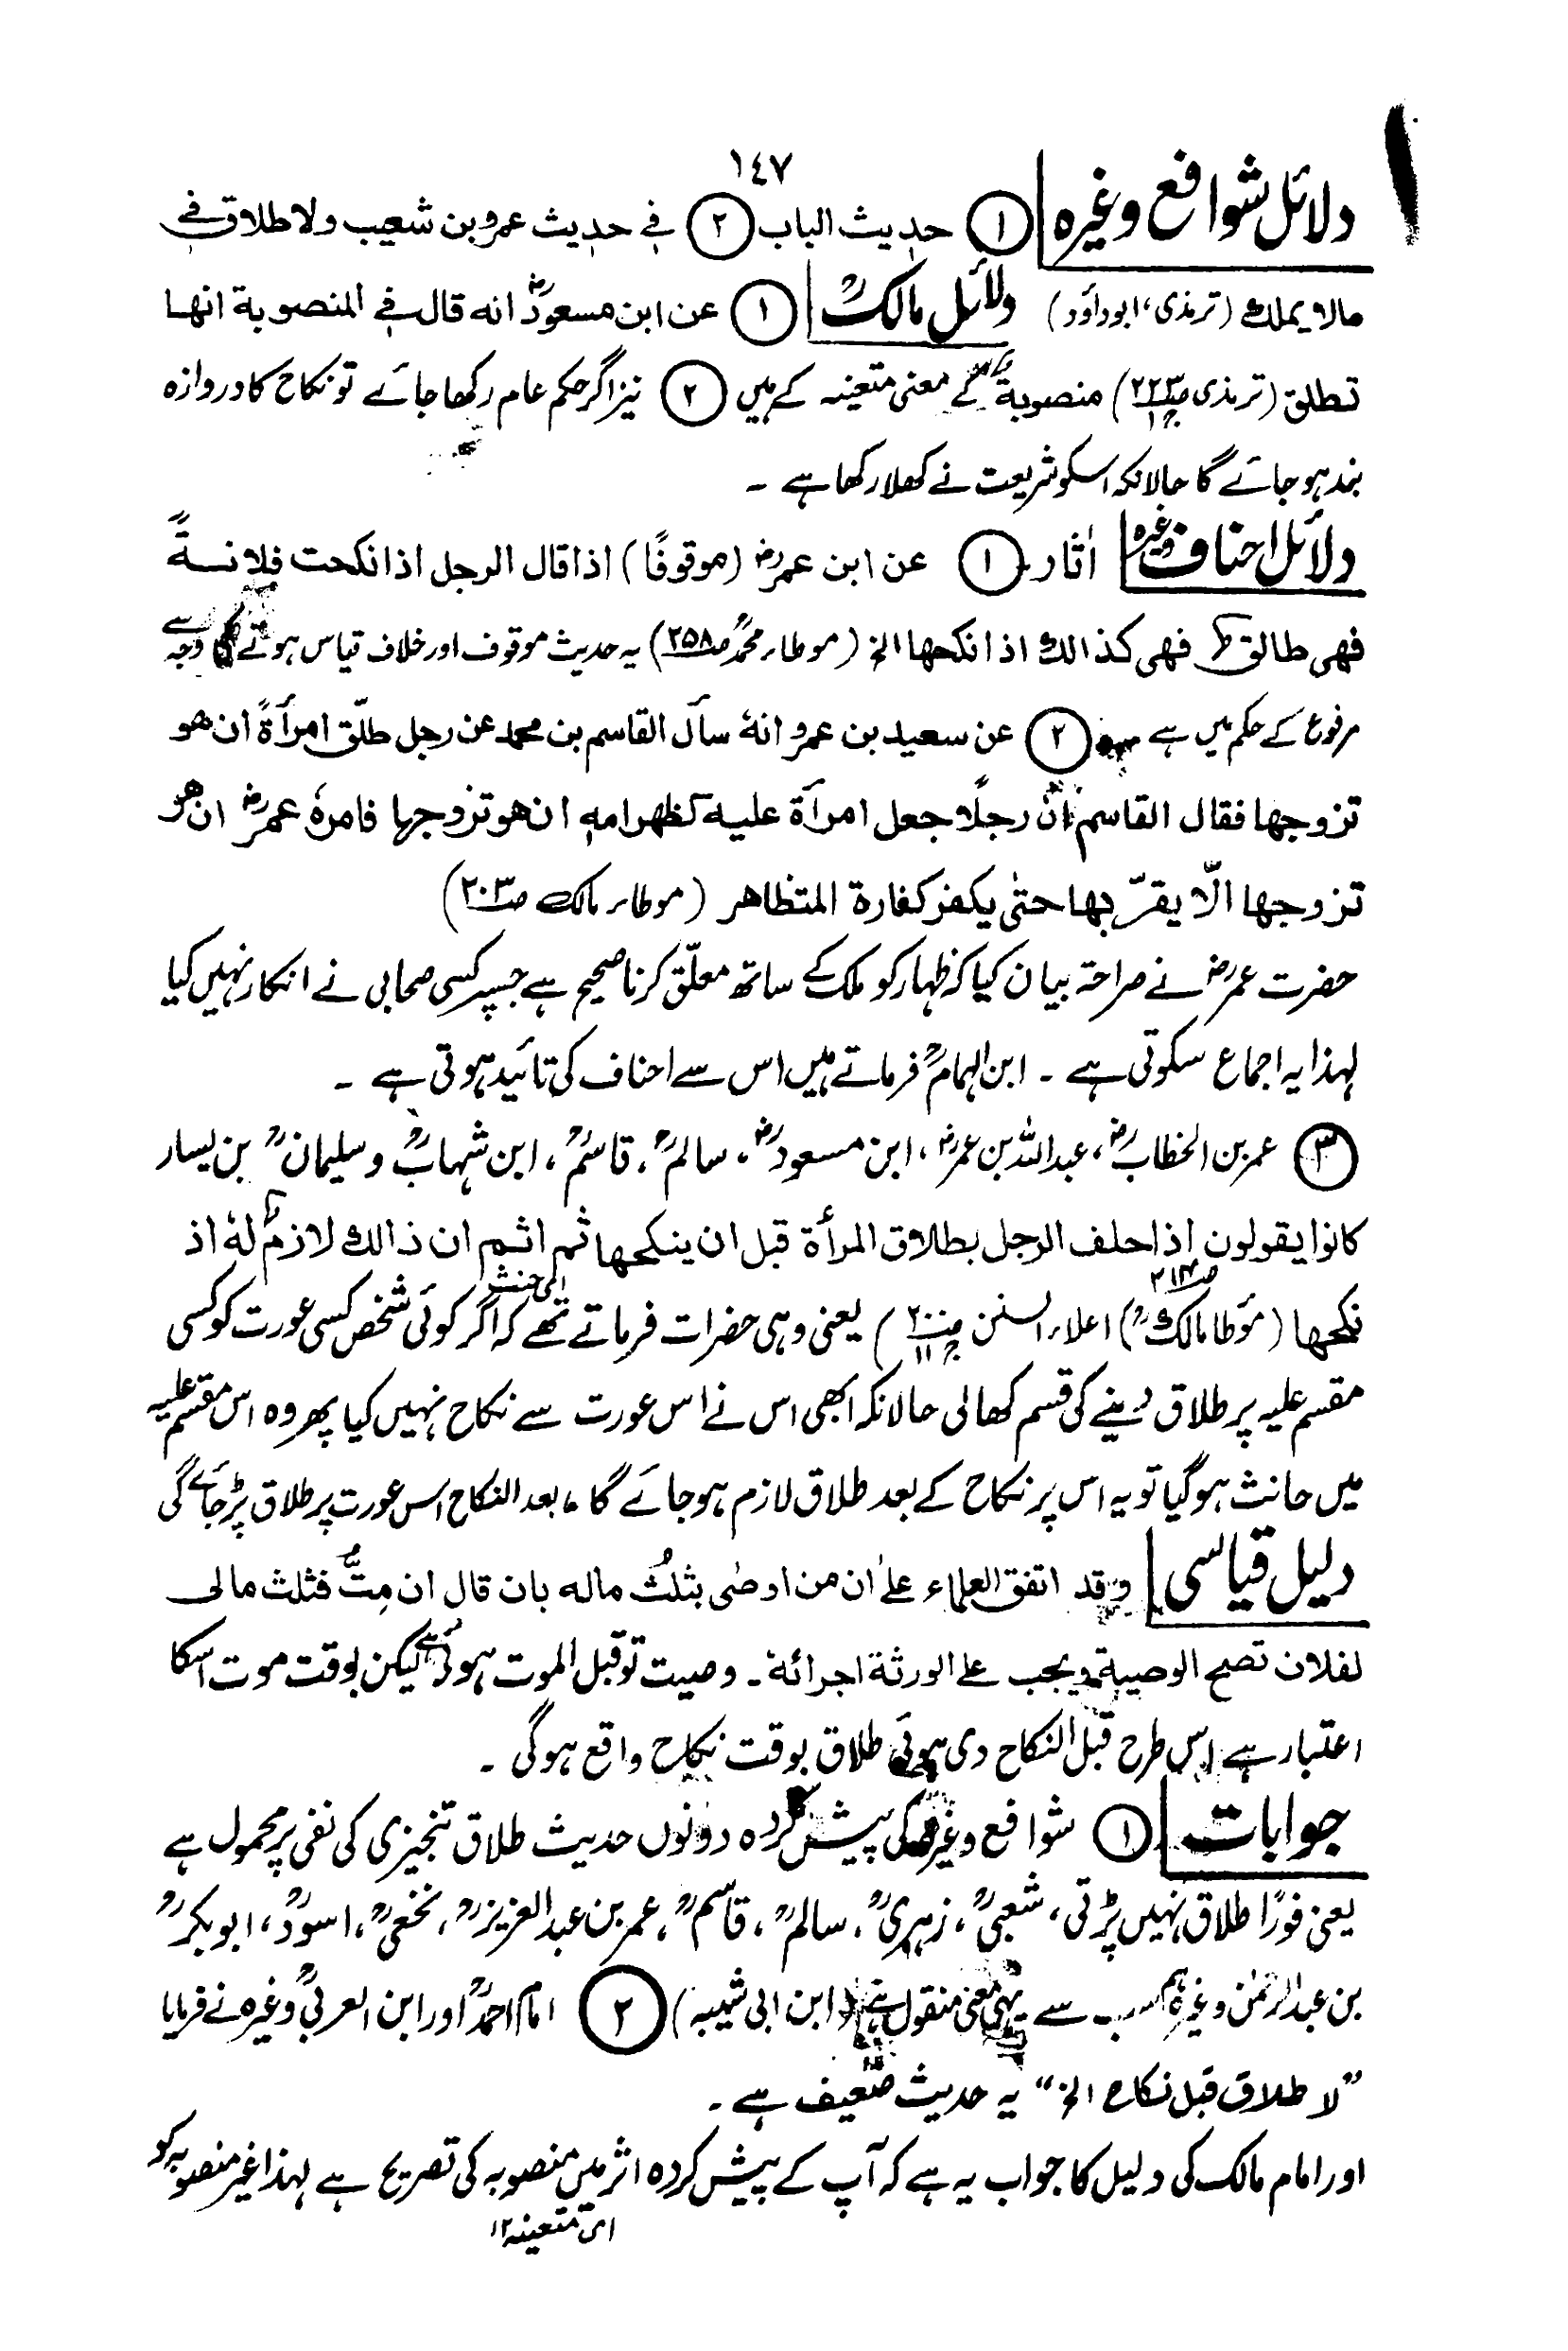 ١٤٧
دلائل شوافع وغیرہ ① حدیث الباب ② فی حدیث عمرو بن شعیب ولا طلاق فی
مالا یملک (ترمذی، ابوداؤد) دلائل مالکؒ ① عن ابن مسعودؓ انہ قال فی المنصوبة انها
تطلق (ترمذی ص۲۲۳ ج۱) منصوبة کے معنی متعینہ کے ہیں ② نیز اگر حکم عام رکھا جائے تو نکاح کا دروازہ
بند ہو جائے گا حالانکہ اسکو شریعت نے کھلا رکھا ہے ۔
دلائل احناف وغیرہ اٰثار ① عن ابن عمرؓ (موقوفًا) اذا قال الرجل اذا نکحت فلانةً
فهی طالق فهی کذالک اذا نکحها الخ (موطاء محمدؒ ص۲۵۸) یہ حدیث موقوف اور خلاف قیاس ہونے کی وجہ سے
مرفوع کے حکم میں ہے ② عن سعید بن عمرو انہٗ سأل القاسم بن محمد عن رجل طلّق امرأةً ان هو
تزوجها فقال القاسم انّ رجلًا جعل امرأة علیہ کظهر امہ ان هو تزوجها فامرہٗ عمرؓ ان هو
تزوجها الّا یقرّبها حتٰی یکفر کفارة المتظاهر (موطاء مالک ص۲۰۳)
حضرت عمرؓ نے صراحۃ بیان کیا کہ ظہار کو ملک کے ساتھ معلّق کرنا صحیح ہے جسپر کسی صحابی نے انکار نہیں کیا
لہذا یہ اجماع سکوتی ہے ۔ ابن الہمامؒ فرماتے ہیں اس سے احناف کی تائید ہوتی ہے ۔
③ عمر بن الخطابؓ، عبداللہ بن عمرؓ، ابن مسعودؓ، سالمؒ، قاسمؒ، ابن شہابؒ وسلیمانؒ بن یسار
کانوا یقولون اذا حلف الرجل بطلاق المرأة قبل ان ینکحها ثم اثم ان ذالک لازمٌ لہٗ اذ
ای حنث ص۲۱۴
نکحها (مؤطا مالکؒ) اعلاء السنن ص۲۰۰ ج۱۱) یعنی وہی حضرات فرماتے تھے کہ اگر کوئی شخص کسی عورت کو کسی
مقسم علیہ پر طلاق دینے کی قسم کھالی حالانکہ ابھی اس نے اس عورت سے نکاح نہیں کیا پھر وہ اس مقسم علیہ
میں حانث ہوگیا تو یہ اس پر نکاح کے بعد طلاق لازم ہوجائے گا، بعد النکاح اس عورت پر طلاق پڑجائے گی
دلیل قیاسی وقد اتفق العلماء علیٰ ان من اوصٰی بثلث مالہ بان قال ان مِتُّ فثلث مالی
لفلان تصح الوصیة ویجب علی الورثة اجرائہ ۔ وصیت تو قبل الموت ہوئی لیکن بوقت موت اسکا
اعتبار ہے اس طرح قبل النکاح دی ہوئی طلاق بوقت نکاح واقع ہوگی ۔
جوابات ① شوافع وغیرہ کی پیش کردہ دونوں حدیث طلاق تنجیزی کی نفی پر محمول ہے
یعنی فورًا طلاق نہیں پڑتی، شعبیؒ، زہریؒ، سالمؒ، قاسمؒ، عمر بن عبدالعزیزؒ، نخعیؒ، اسودؒ، ابوبکرؒ
بن عبدالرحمٰن وغیرہم سب سے یہی معنی منقول ہے (ابن ابی شیبہ) ② امام احمدؒ اور ابن العربیؒ وغیرہ نے فرمایا
”لا طلاق قبل نکاح الخ“ یہ حدیث ضعیف ہے ۔
اور امام مالک کی دلیل کا جواب یہ ہے کہ آپ کے پیش کردہ اثر میں منصوبہ کی تصریح ہے لہذا غیر منصوبہ کو
ای متعینہ ۱۲